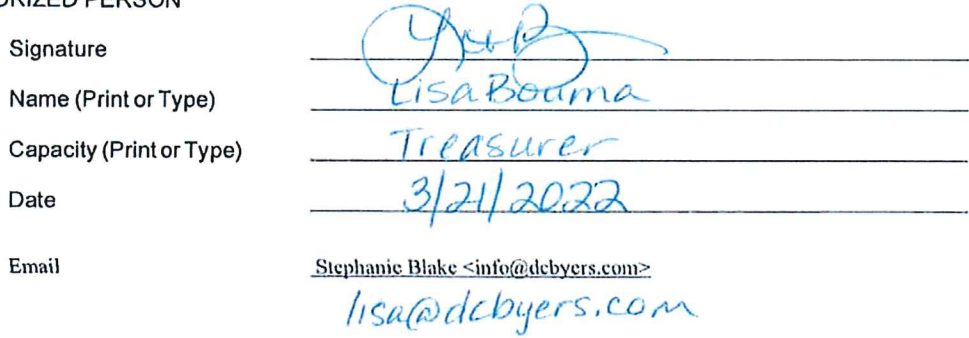 ORIZED PERSON
Signature
Name (Print or Type) Lisa Bouma
Capacity (Print or Type) Treasurer
Date 3/21/2022
Email Stephanie Blake <info@dcbyers.com>
lisa@dcbyers.com